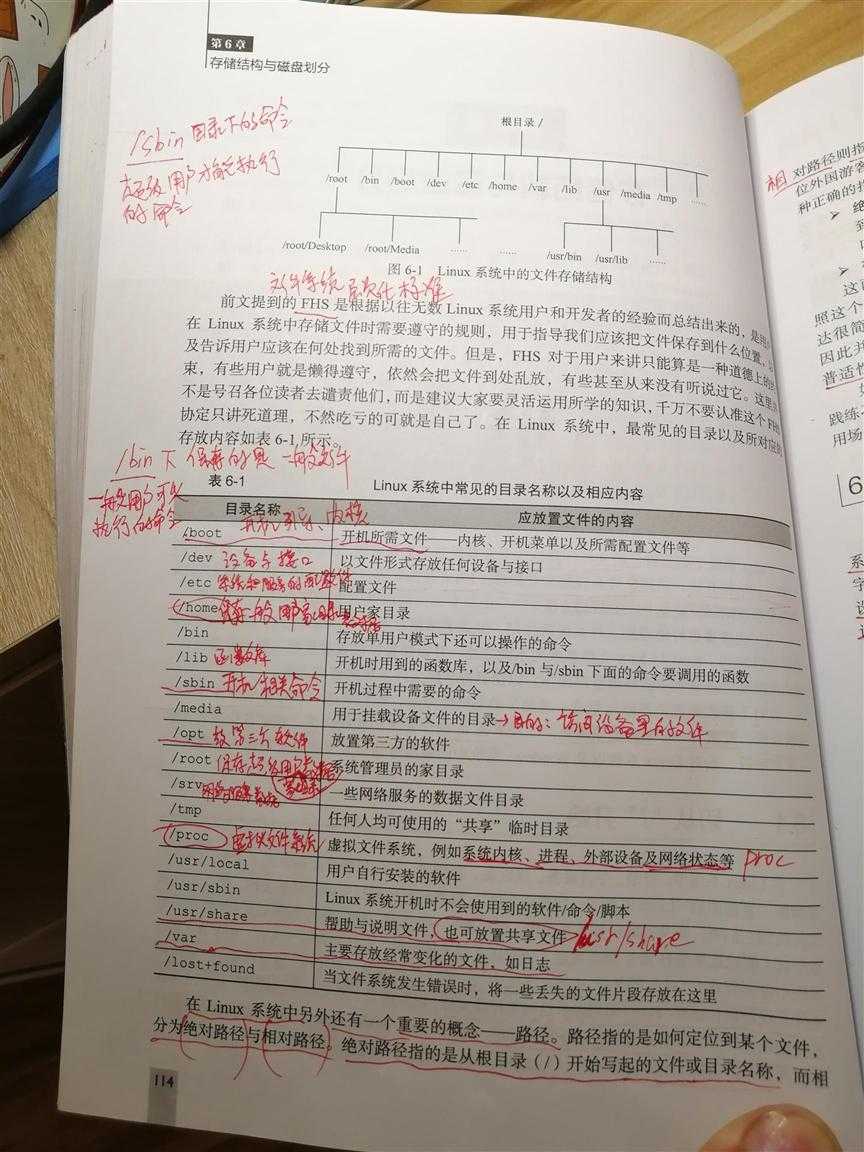 第6章
存储结构与磁盘划分
/sbin 目录下的命令
超级用户才能执行
的命令
根目录 /
/root /bin /boot /dev /etc /home /var /lib /usr /media /tmp ……
/root/Desktop /root/Media …… …… /usr/bin /usr/lib ……
图 6-1 Linux 系统中的文件存储结构
文件系统层次化标准
前文提到的 FHS 是根据以往无数 Linux 系统用户和开发者的经验而总结出来的,是用
在 Linux 系统中存储文件时需要遵守的规则,用于指导我们应该把文件保存到什么位置,
及告诉用户应该在何处找到所需的文件。但是,FHS 对于用户来讲只能算是一种道德上的
束,有些用户就是懒得遵守,依然会把文件到处乱放,有些甚至从来没有听说过它。这里
不是号召各位读者去谴责他们,而是建议大家要灵活运用所学的知识,千万不要认准这个 FHS
协定只讲死道理,不然吃亏的可就是自己了。在 Linux 系统中,最常见的目录以及所对应的
存放内容如表 6-1 所示。
/bin 下保存的是一般文件
一般用户可以
执行的命令
表 6-1 Linux 系统中常见的目录名称以及相应内容
目录名称 应放置文件的内容
/boot 开机引导、内核 开机所需文件——内核、开机菜单以及所需配置文件等
/dev 设备与接口 以文件形式存放任何设备与接口
/etc 系统和服务的配置文件 配置文件
/home 保存一般用户家目录 用户家目录
/bin 存放单用户模式下还可以操作的命令
/lib 函数库 开机时用到的函数库,以及/bin 与/sbin 下面的命令要调用的函数
/sbin 开机相关命令 开机过程中需要的命令
/media 用于挂载设备文件的目录→目的:访问设备里的文件
/opt 放第三方软件 放置第三方的软件
/root 保存超级用户 系统管理员的家目录
/srv 一些网络服务的数据文件目录
/tmp 任何人均可使用的“共享”临时目录
/proc 虚拟文件系统 虚拟文件系统,例如系统内核、进程、外部设备及网络状态等 proc
/usr/local 用户自行安装的软件
/usr/sbin Linux 系统开机时不会使用到的软件/命令/脚本
/usr/share 帮助与说明文件,也可放置共享文件 /usr/share
/var 主要存放经常变化的文件,如日志
/lost+found 当文件系统发生错误时,将一些丢失的文件片段存放在这里
在 Linux 系统中另外还有一个重要的概念——路径。路径指的是如何定位到某个文件,
分为绝对路径与相对路径。绝对路径指的是从根目录(/)开始写起的文件或目录名称,而相
114
相
对路径则指
位外国游客
种正确的指
➤ 绝
到
➤
这
照这个
达很简
因此并
普适性
践练
用场
6
系
字